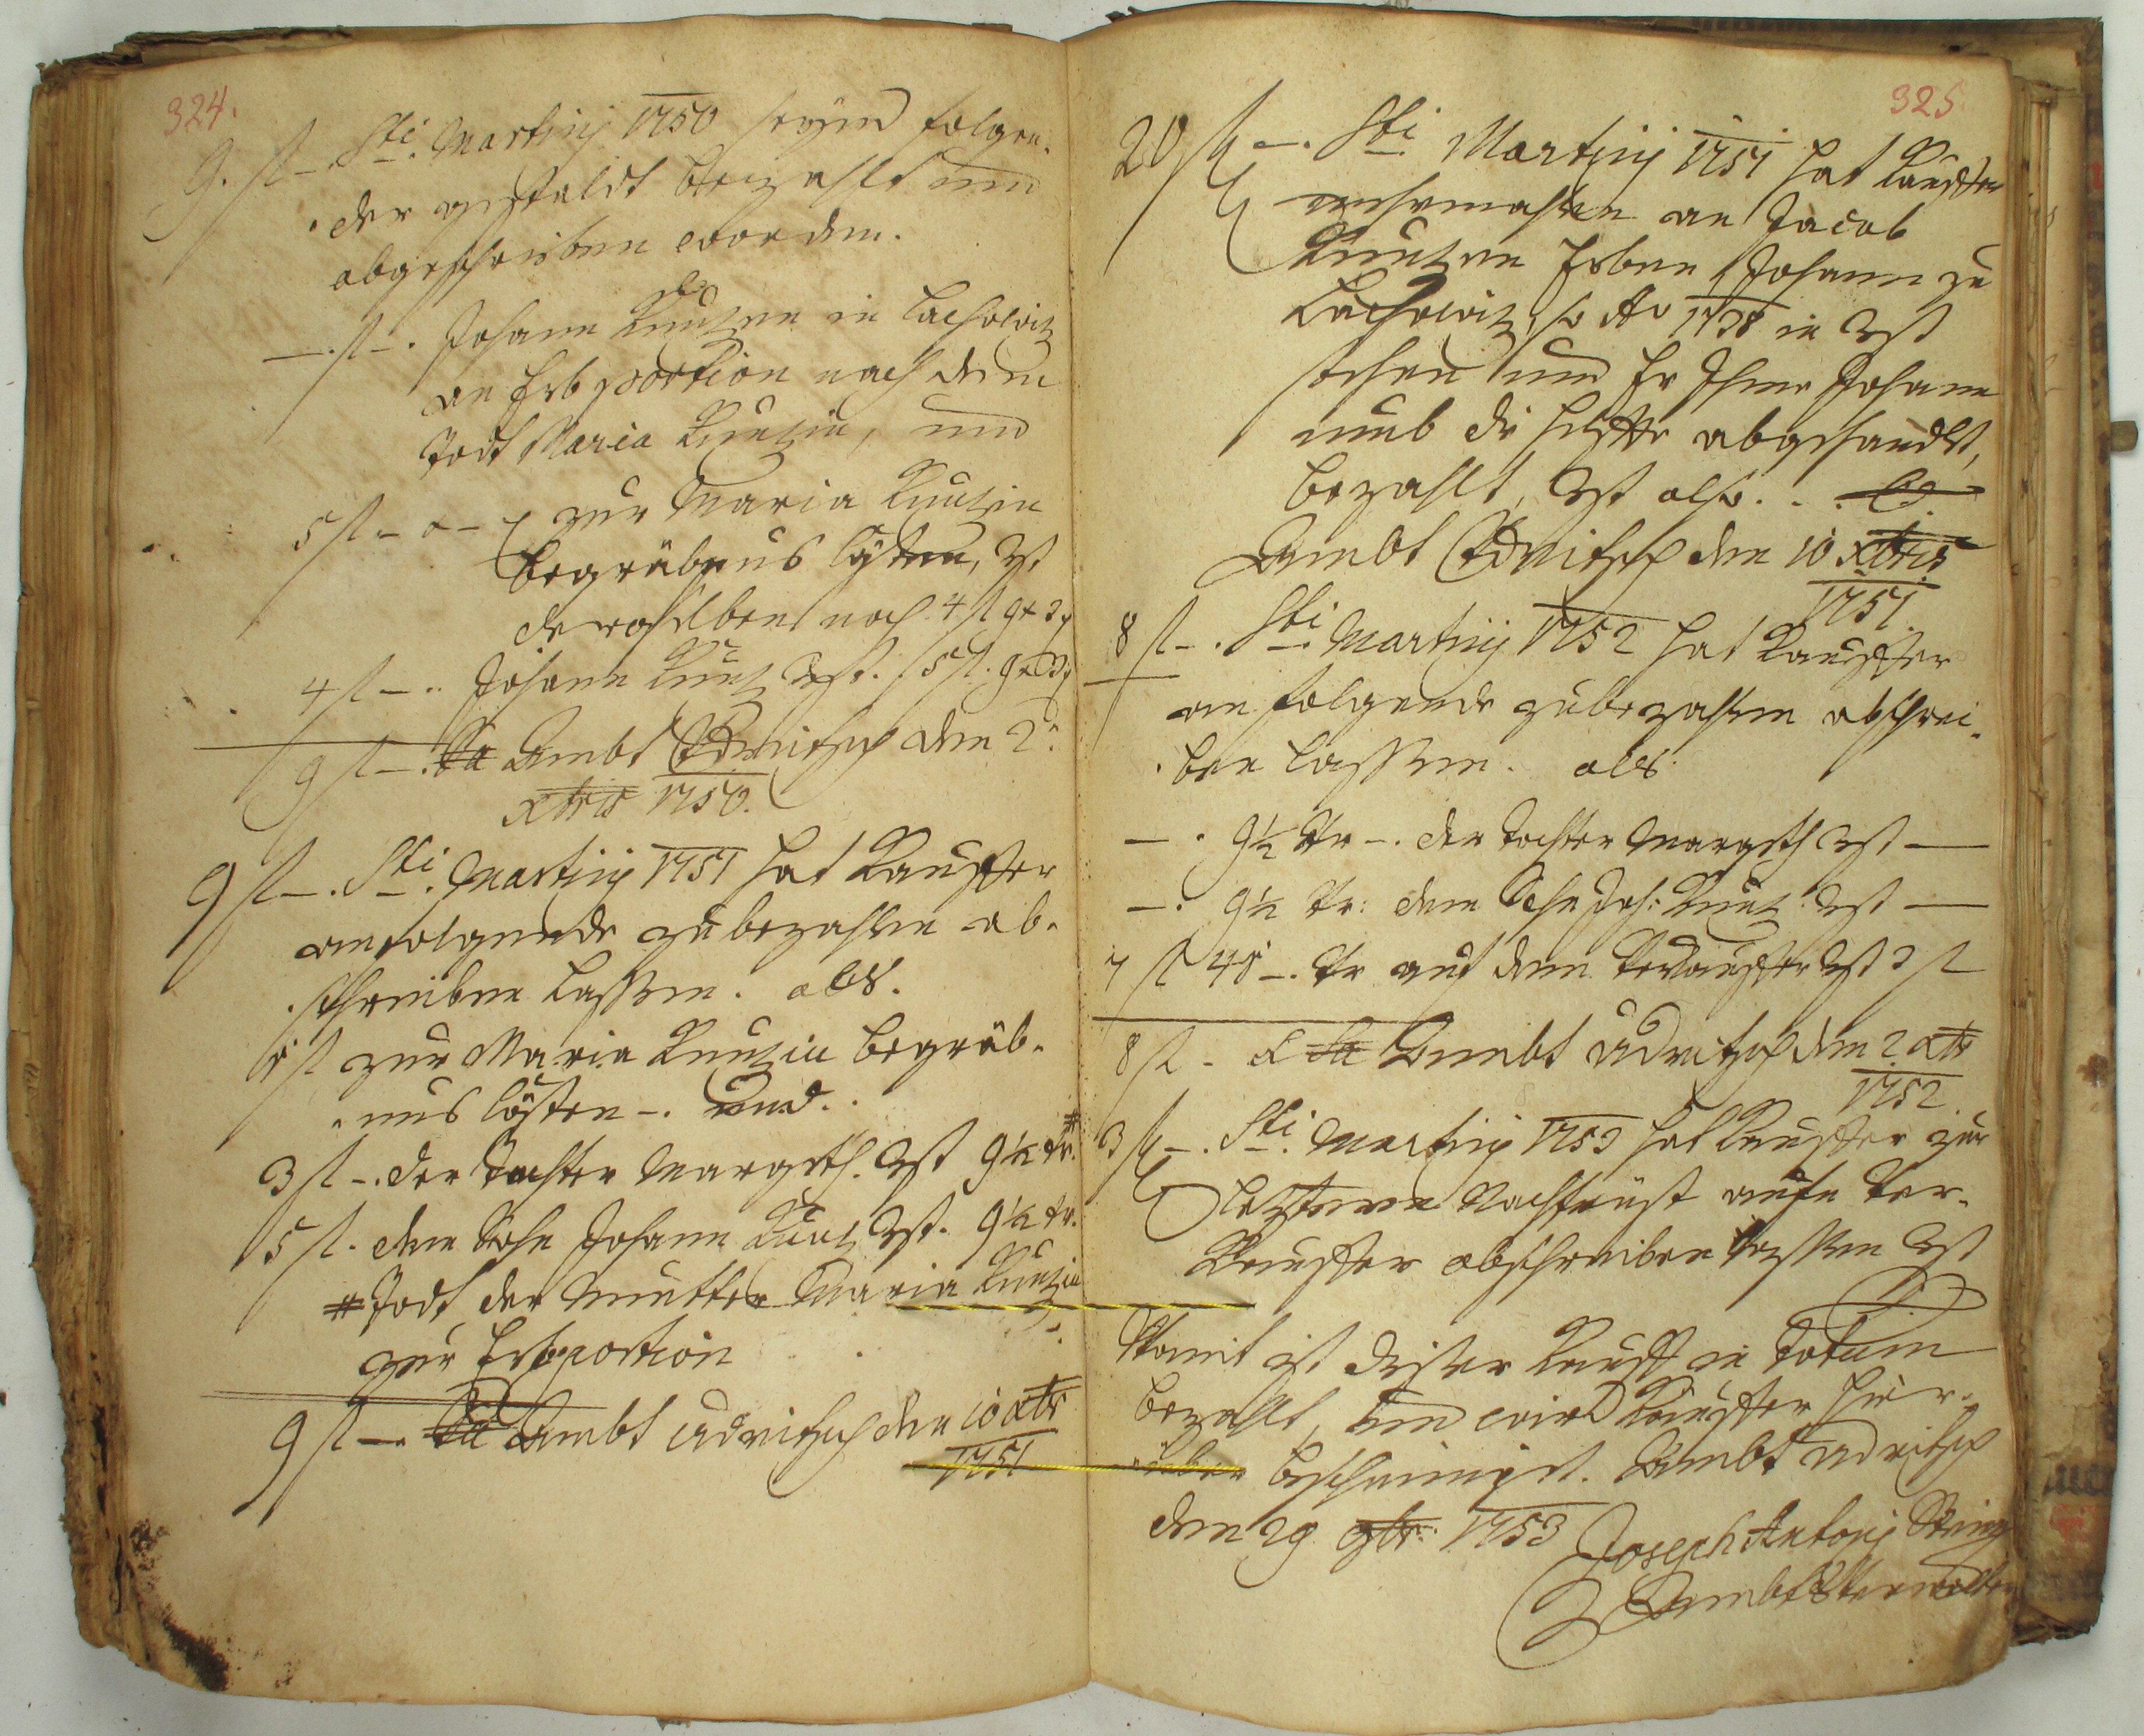 324.
9. fl – Sti. Martinj 1750 seynd folgen-
der gestaldt bezahlt und
abgeschrieben worden.
—.fl –. Johann Kuntzen in Lachowitz
an Erbportion nach dem
Todt Maria Kuntzin, und
5 fl – o – zur Maria Kuntzin
begräbnus Cösten, Ist
derselben noch 4 fl
4 fl –.. Johann Kuntz Ist. 5 fl.
9 fl –. Sa Ambt Udritsch den 2.
Xbris 1750.
9 fl –. Sti. Martinj 1751 hat Kauffer
an folgende zubezahlen ab-
schreiben Lassen. als.
1 fl zur Maria Kuntzin begräb-
nus Cösten –. und..
3 fl –. der Tochter Margeth. Ist 9½ Xr. #
5 fl. dem Sohn Johann Kuntz Ist. 9½ Xr.
# Todt der Mutter Maria Kuntzin
zur Erbportion
9 fl –. Sa Ambt Udritsch den 10 Xbr
1751
325
20 ß –. Sti Martinj 1751 hat Kauffer
mehrmahlen an Jacob
Kuntzen Erben Johann zu
Lachowitz, so Ao 1738 in Ist
stehen und Er Ihme Johann
umb die helffte abgehandlt,
bezahlt, Ist also..
Ambt Udritsch den 10 Xbris
1751.
8 fl –. Sti Martinj 1752 hat Kauffer
an folgende zubezahlen abschrei-
ben Lassen. als
—. 9½ Xr –. der Tochter Margeth Ist —
—. 9½ Xr: dem Sohn Joh: Kuntz Ist —
7 fl 41 –. Xr auf dem Verkauffer Ist 3 fl
8 fl – Sa Ambt Udritsch den 2 Xbr
1752.
3 ß –. Sti. Martinj 1753 hat Kauffer zur
Letzteren Nachfrist aufn Ver-
kauffer abschreiben Lassen Ist
Womit ist dieser Kauff in Totum
bezahlt, und wird Kauffer hier-
über bescheiniget. Ambt Udritsch
den 29 9br: 1753 Joseph Antonj
Ambts Verwalter